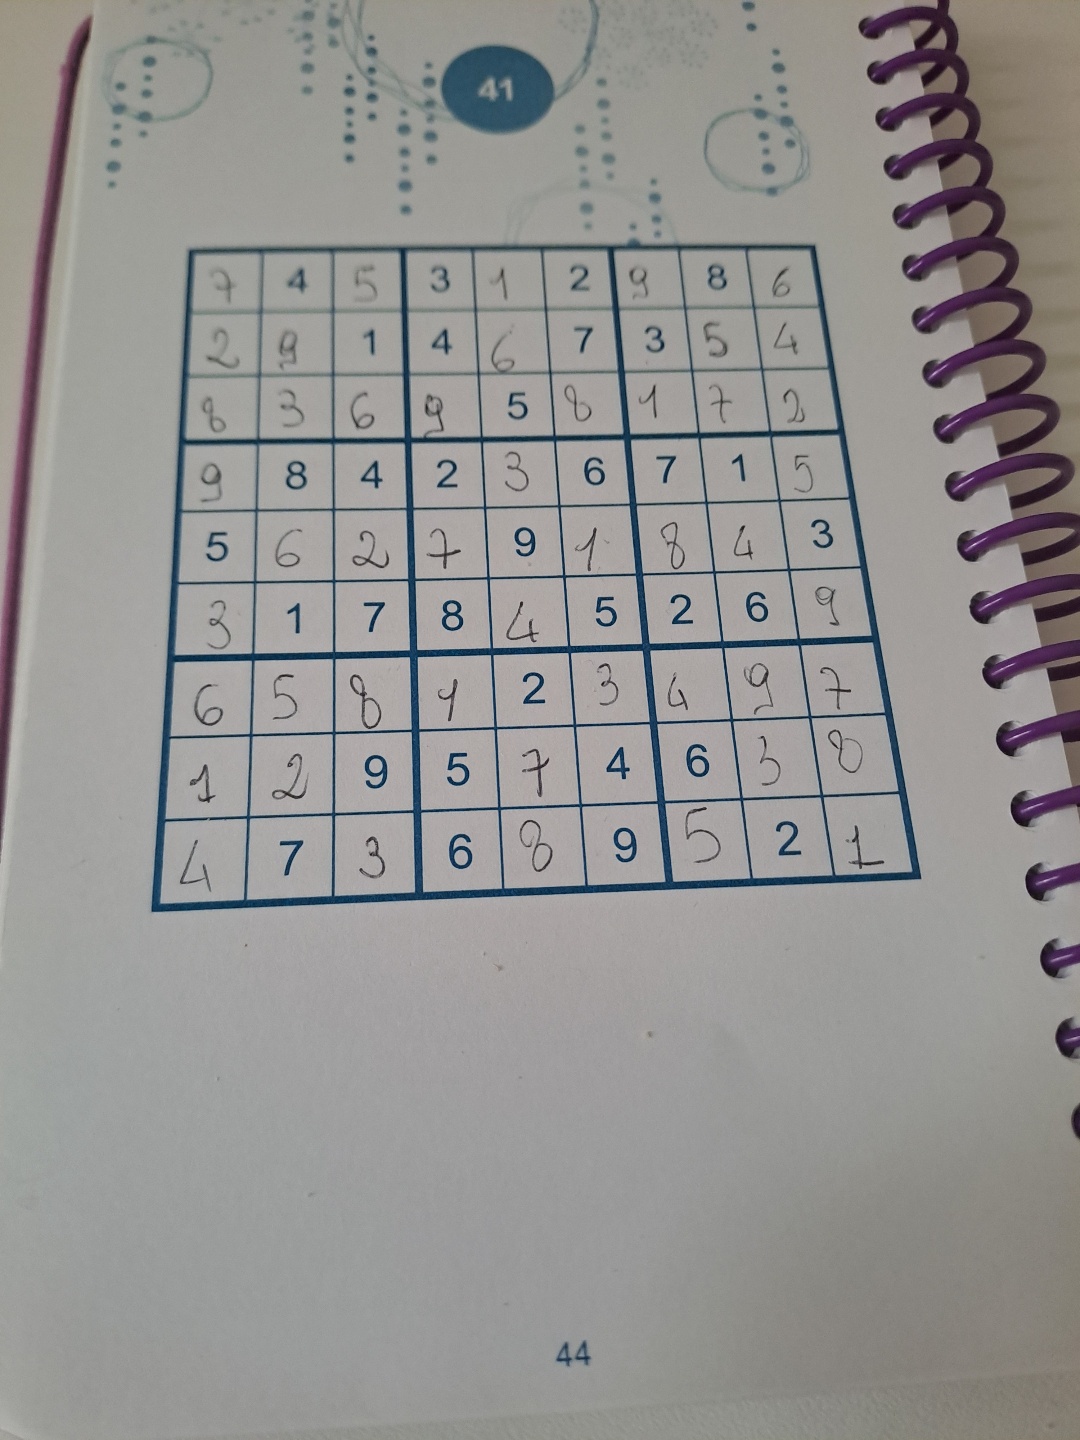 41
7 4 5 3 1 2 9 8 6
2 9 1 4 6 7 3 5 4
8 3 6 9 5 8 1 7 2
9 8 4 2 3 6 7 1 5
5 6 2 7 9 1 8 4 3
3 1 7 8 4 5 2 6 9
6 5 8 1 2 3 4 9 7
1 2 9 5 7 4 6 3 8
4 7 3 6 8 9 5 2 1
44